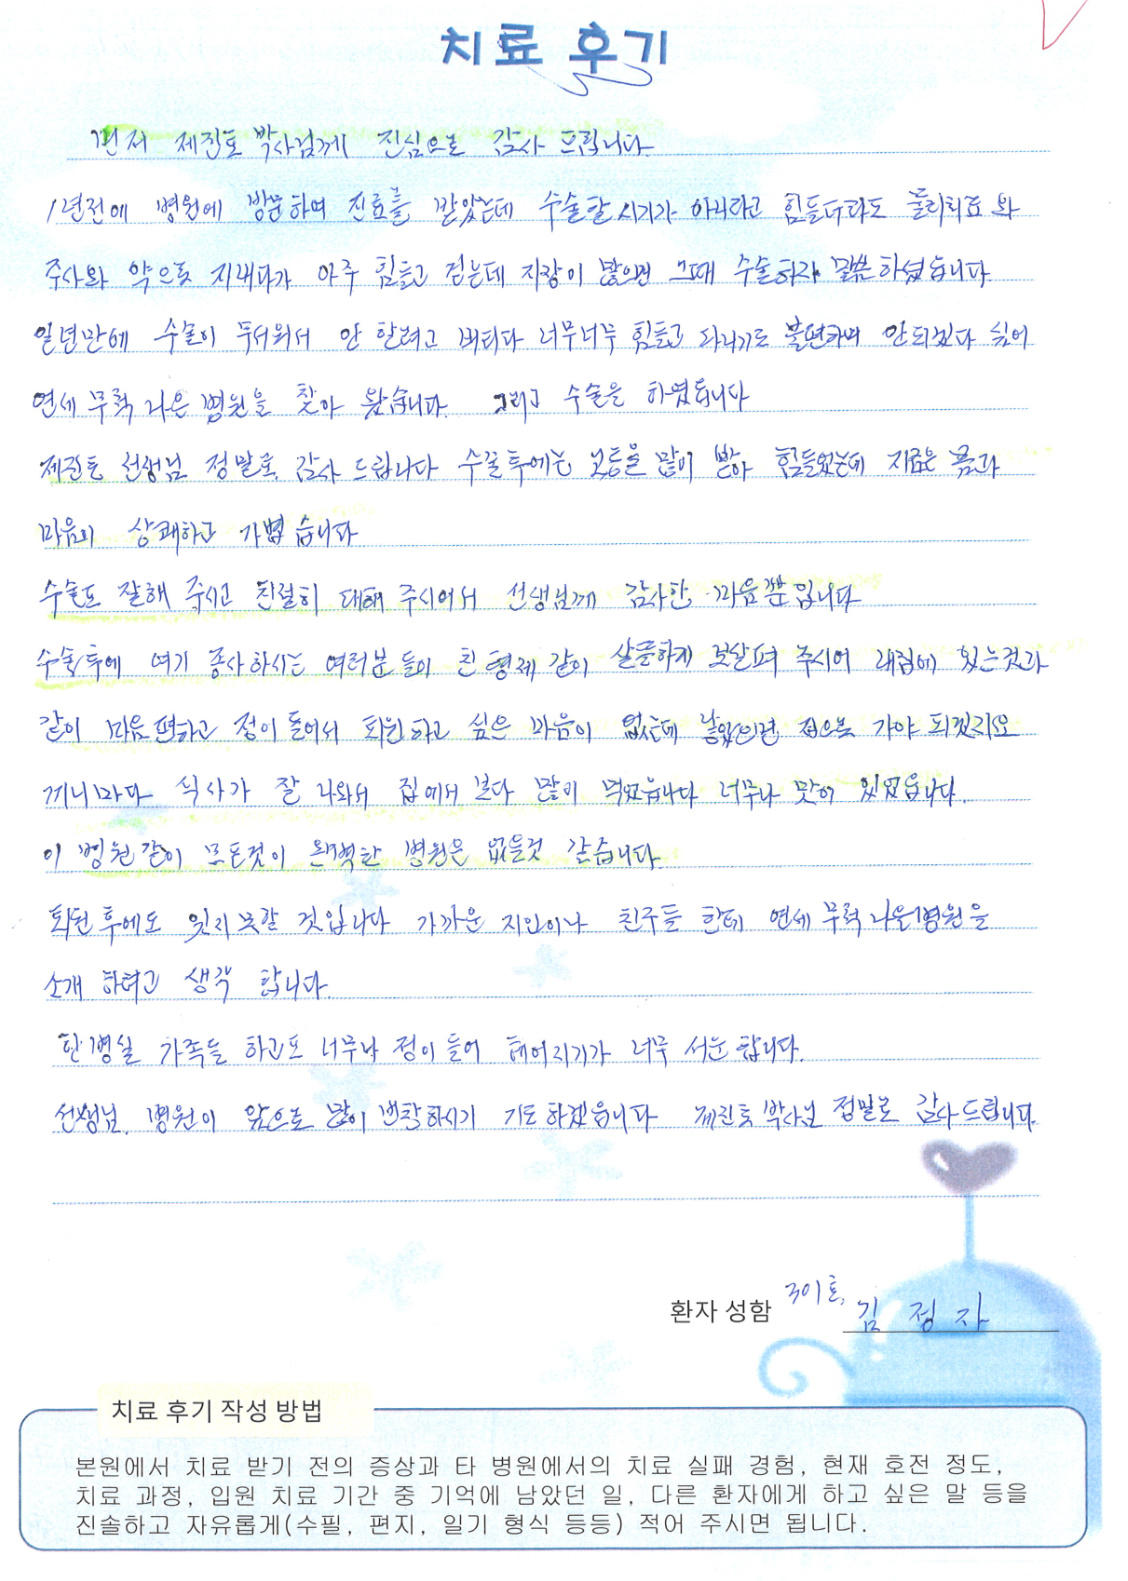 치료 후기
먼저 제진호 박사님께 진심으로 감사 드립니다.
1년전에 병원에 방문하여 진료를 받았는데 수술할 시기가 아니라고 힘들더라도 물리치료와
주사와 약으로 지내다가 아주 힘들고 걷는데 지장이 많으면 그때 수술하자 말씀하셨습니다.
일년만에 수술이 무서워서 안 할려고 버티다 너무너무 힘들고 다니기도 불편하며 안되겠다 싶어
연세 무척 나은 병원을 찾아 왔습니다. 그리고 수술을 하였습니다
제진호 선생님 정말로 감사 드립니다 수술후에는 고통을 많이 받아 힘들었는데 지금은 몸과
마음이 상쾌하고 가볍습니다
수술도 잘해 주시고 친절히 대해 주시어서 선생님께 감사한 마음뿐입니다
수술후에 여기 종사하시는 여러분들이 친 형제 같이 살뜰하게 보살펴 주시어 내집에 있는것과
같이 마음편하고 정이 들어서 퇴원하고 싶은 마음이 없는데 낳았으면 집으로 가야 되겠지요
끼니마다 식사가 잘 나와서 집에서 보다 많이 먹었습니다 너무나 맛이 있었습니다.
이 병원같이 모든것이 완벽한 병원은 없을것 같습니다.
퇴원후에도 잊지못할 것입니다 가까운 지인이나 친구들 한테 연세 무척 나은병원을
소개 하려고 생각 합니다.
한병실 가족들 하고도 너무나 정이 들어 헤어지기가 너무 서운합니다.
선생님. 병원이 앞으로 많이 번창하시기 기도하겠습니다 제진호 박사님 정말로 감사드립니다.
환자 성함 301호, 김정자
치료 후기 작성 방법
본원에서 치료 받기 전의 증상과 타 병원에서의 치료 실패 경험, 현재 호전 정도,
치료 과정, 입원 치료 기간 중 기억에 남았던 일, 다른 환자에게 하고 싶은 말 등을
진솔하고 자유롭게(수필, 편지, 일기 형식 등등) 적어 주시면 됩니다.